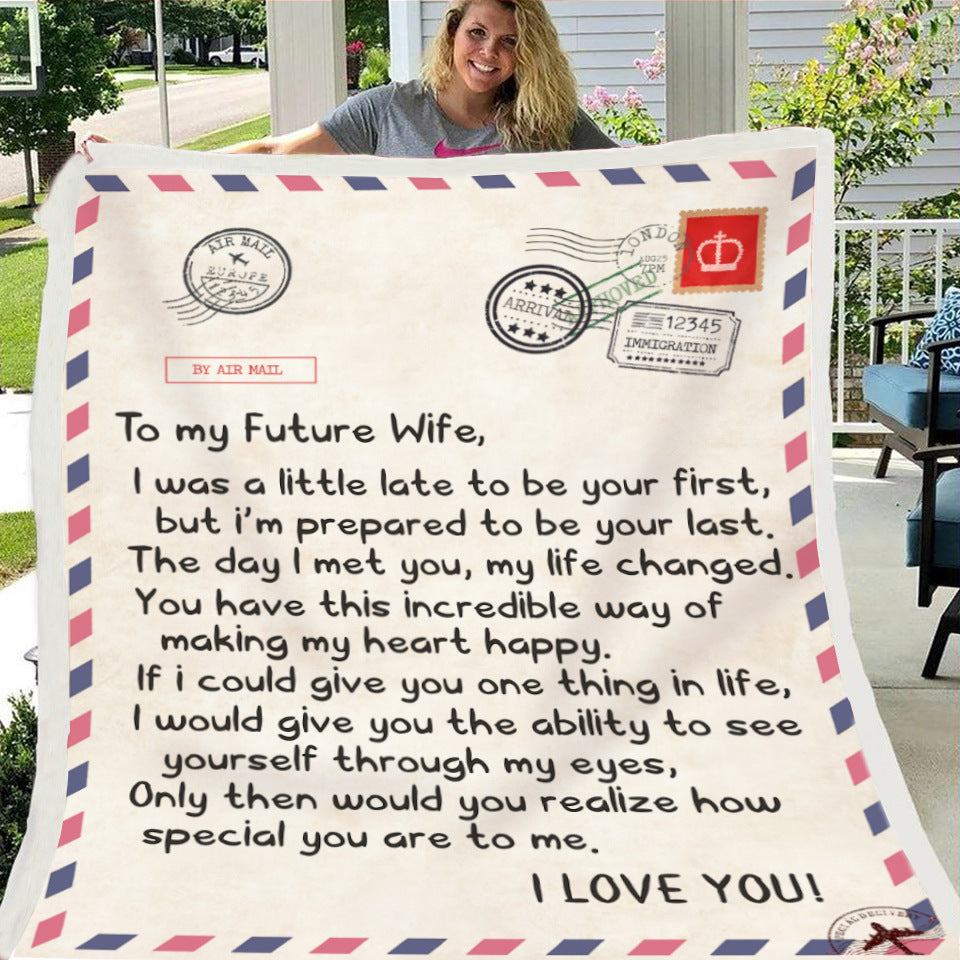 AIR MAIL
EUROPE
LONDON
AUG25
7PM
ARRIVAL
12345
IMMIGRATION
BY AIR MAIL
To my Future Wife,
I was a little late to be your first,
but i'm prepared to be your last.
The day I met you, my life changed.
You have this incredible way of
making my heart happy.
If i could give you one thing in life,
I would give you the ability to see
yourself through my eyes,
Only then would you realize how
special you are to me.
I LOVE YOU!
DELIVERY